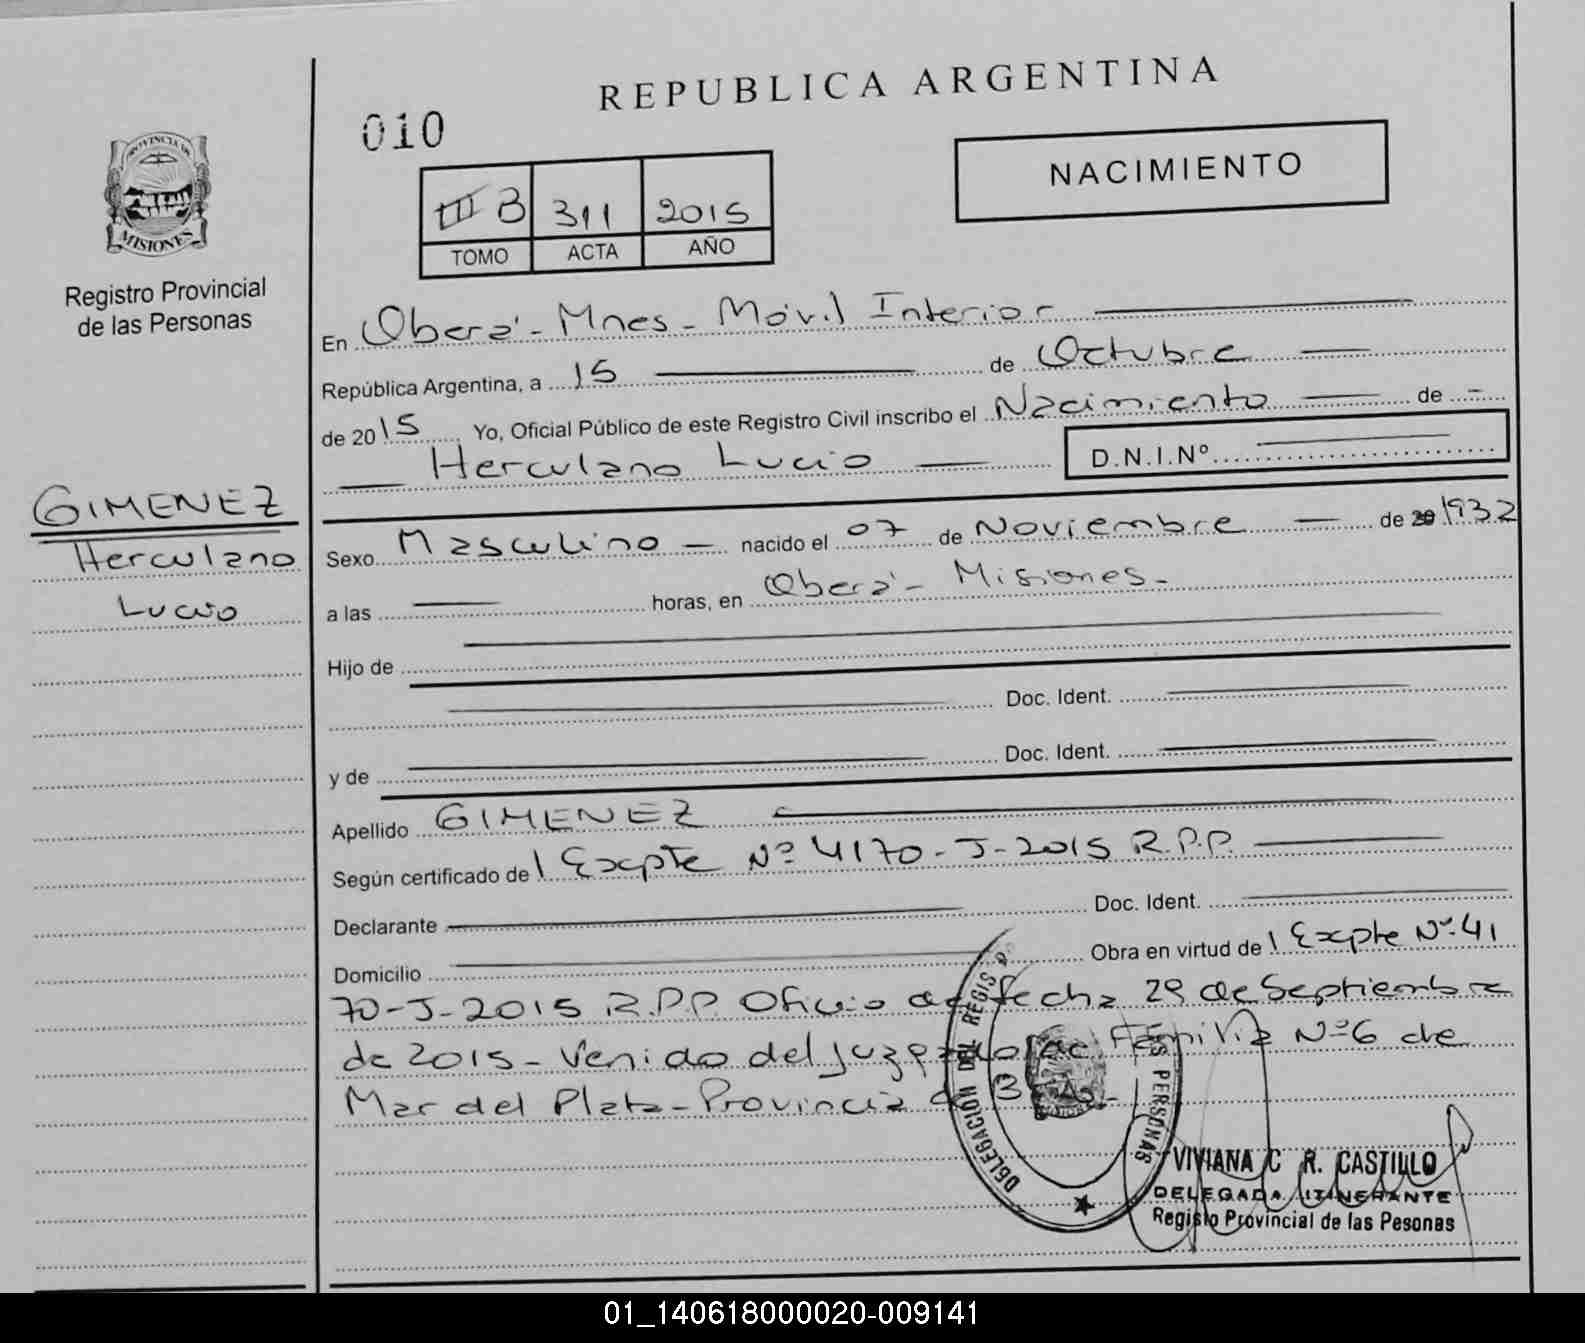 REPUBLICA ARGENTINA
010
NACIMIENTO
PROVINCIA DE
MISIONES
Registro Provincial
de las Personas
III B 311 2015
TOMO ACTA AÑO
En Oberá - Mnes - Móvil Interior
República Argentina, a 15 de Octubre
de 2015 Yo, Oficial Público de este Registro Civil inscribo el Nacimiento de
Herculano Lucio D.N.I.Nº
GIMENEZ
Herculano
Lucio
Sexo Masculino nacido el 07 de Noviembre de 1932
a las horas, en Oberá - Misiones -
Hijo de
Doc. Ident.
y de Doc. Ident.
Apellido GIMENEZ
Según certificado de 1 Expte Nº 4170-J-2015 R.P.P.
Declarante Doc. Ident.
Domicilio Obra en virtud de 1 Expte Nº 41
70-J-2015 R.P.P. Oficio de fecha 29 de Septiembre
de 2015 - Venido del Juzgado de Familia Nº 6 de
Mar del Plata - Provincia
DELEGACIÓN DEL REGIS
PERSONAS
VIVIANA C R. CASTILLO
DELEGADA ITINERANTE
Registo Provincial de las Pesonas
01_140618000020-009141